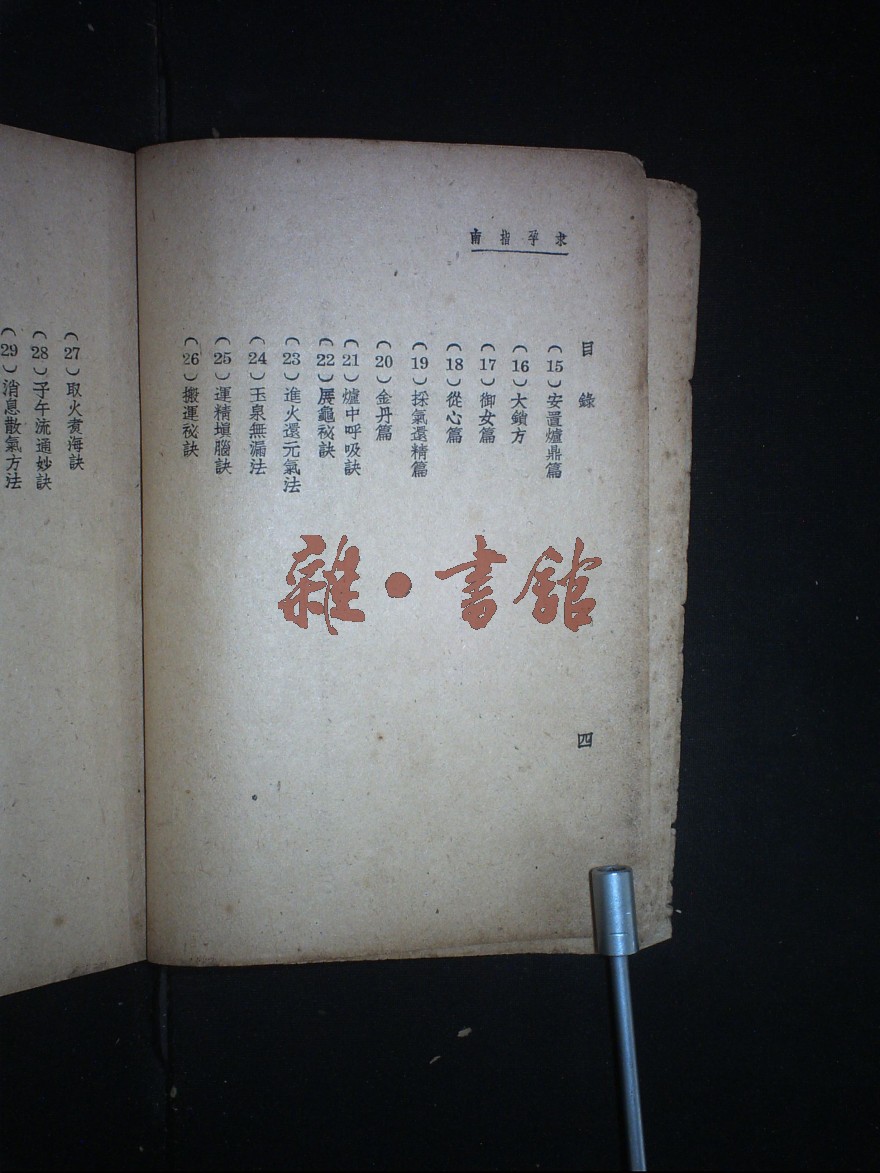 求孕指南
目錄
(15)安置爐鼎篇
(16)大鎖方
(17)御女篇
(18)從心篇
(19)採氣還精篇
(20)金丹篇
(21)爐中呼吸訣
(22)展龜祕訣
(23)進火還元氣法
(24)玉泉無漏法
(25)運精塡腦訣
(26)搬運祕訣
四
(27)取火煑海訣
(28)子午流通妙訣
(29)消息散氣方法
雜·書館